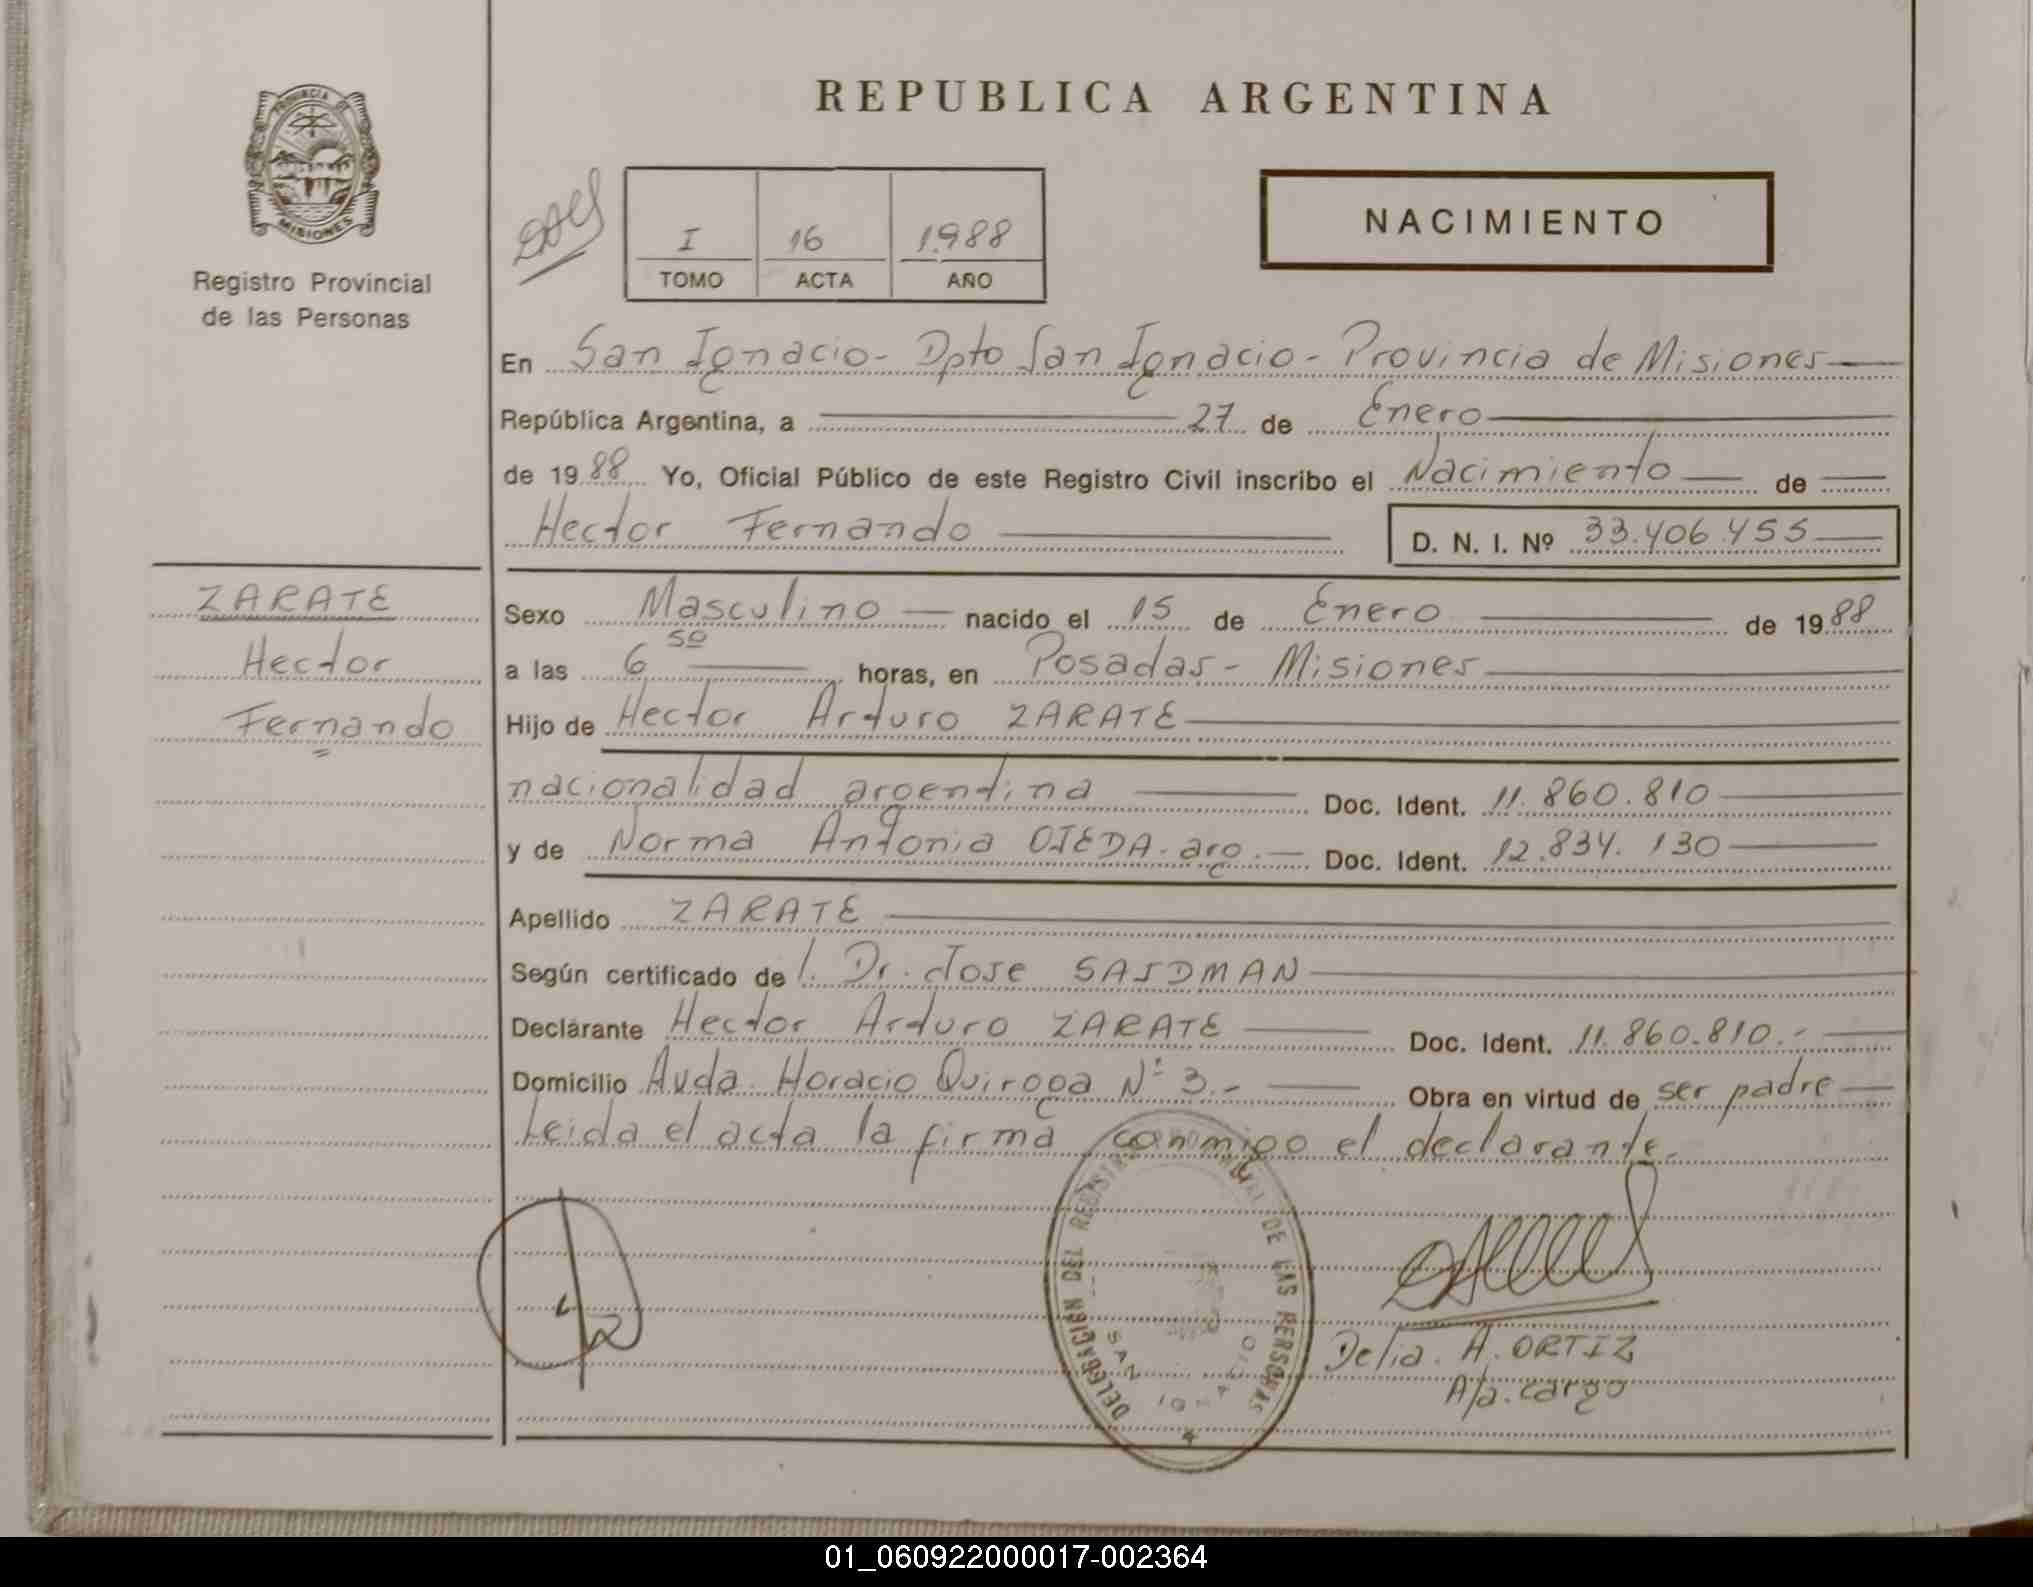 PROVINCIA DE
MISIONES
Registro Provincial
de las Personas
REPUBLICA ARGENTINA
I 16 1.988
TOMO ACTA AÑO
NACIMIENTO
En San Ignacio - Dpto San Ignacio - Provincia de Misiones
República Argentina, a 27 de Enero
de 1988 Yo, Oficial Público de este Registro Civil inscribo el Nacimiento de
Hector Fernando D. N. I. Nº 33.406.455
ZARATE
Hector
Fernando
Sexo Masculino nacido el 15 de Enero de 1988
a las 6 50 horas, en Posadas - Misiones
Hijo de Hector Arturo ZARATE
nacionalidad argentina Doc. Ident. 11.860.810
y de Norma Antonia OJEDA. arg. Doc. Ident. 12.834.130
Apellido ZARATE
Según certificado de l. Dr. Jose SAIDMAN
Declarante Hector Arturo ZARATE Doc. Ident. 11.860.810.-
Domicilio Avda. Horacio Quiroga Nº 3.- Obra en virtud de ser padre
Leida el acta la firma conmigo el declarante.
DELEGACIÓN DEL REGISTRO PROVINCIAL DE LAS PERSONAS
SAN IGNACIO
Delia. A. ORTIZ
A/a. cargo
01_060922000017-002364